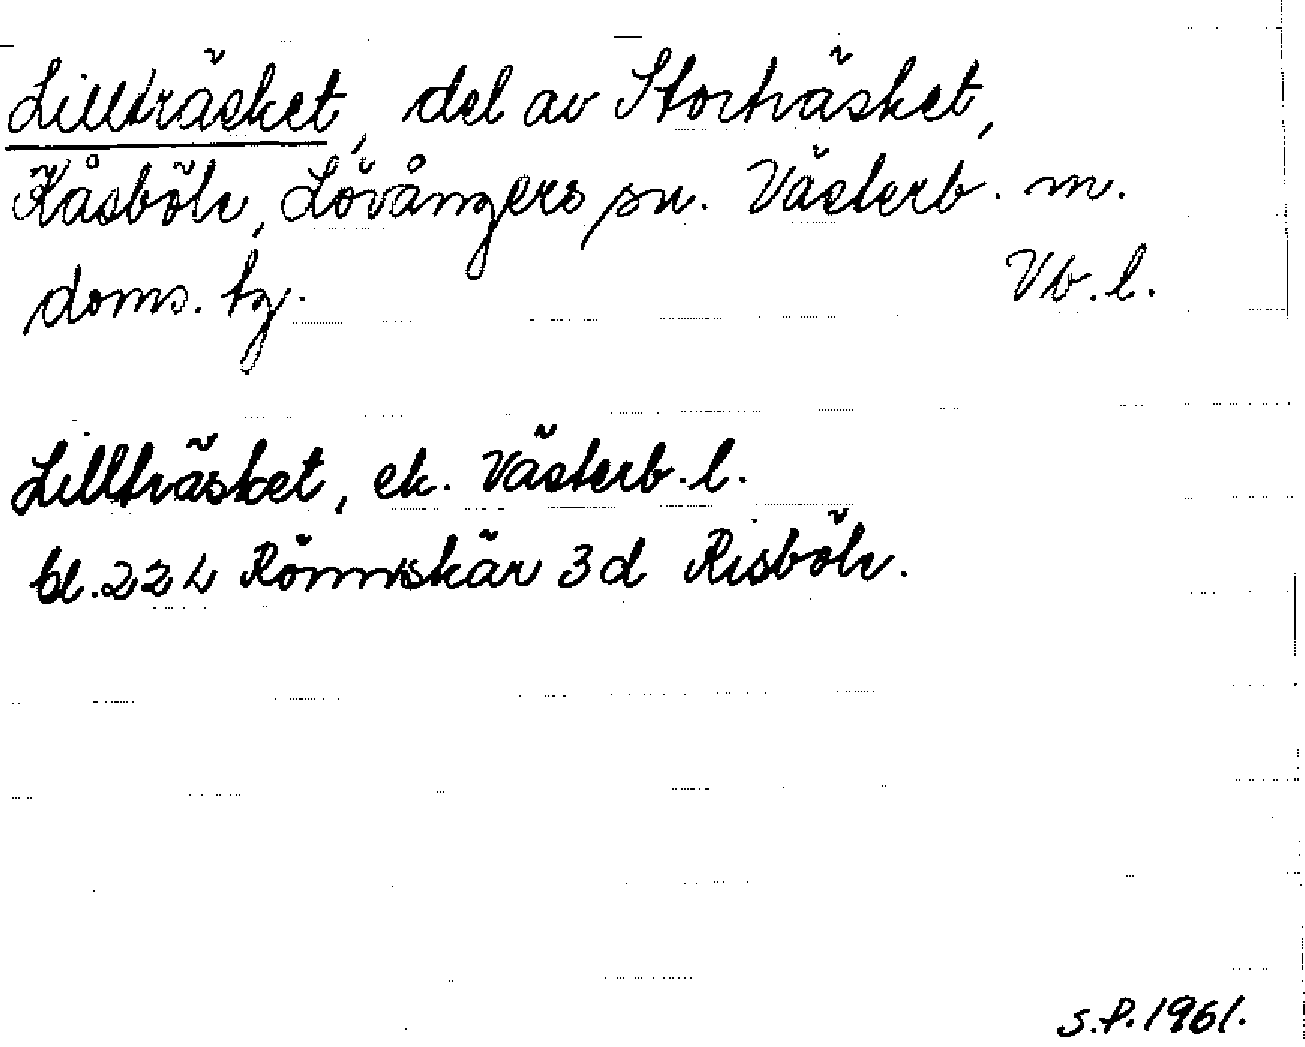 Lillträsket, del av Storträsket,
Kåsböle, Lövångers sn. Västerb. m.
doms. tg. Vb. l.
Lillträsket, ek. Västerb. l.
bl. 22 L Rönnskär 3d Risböle.
S.P. 1961.